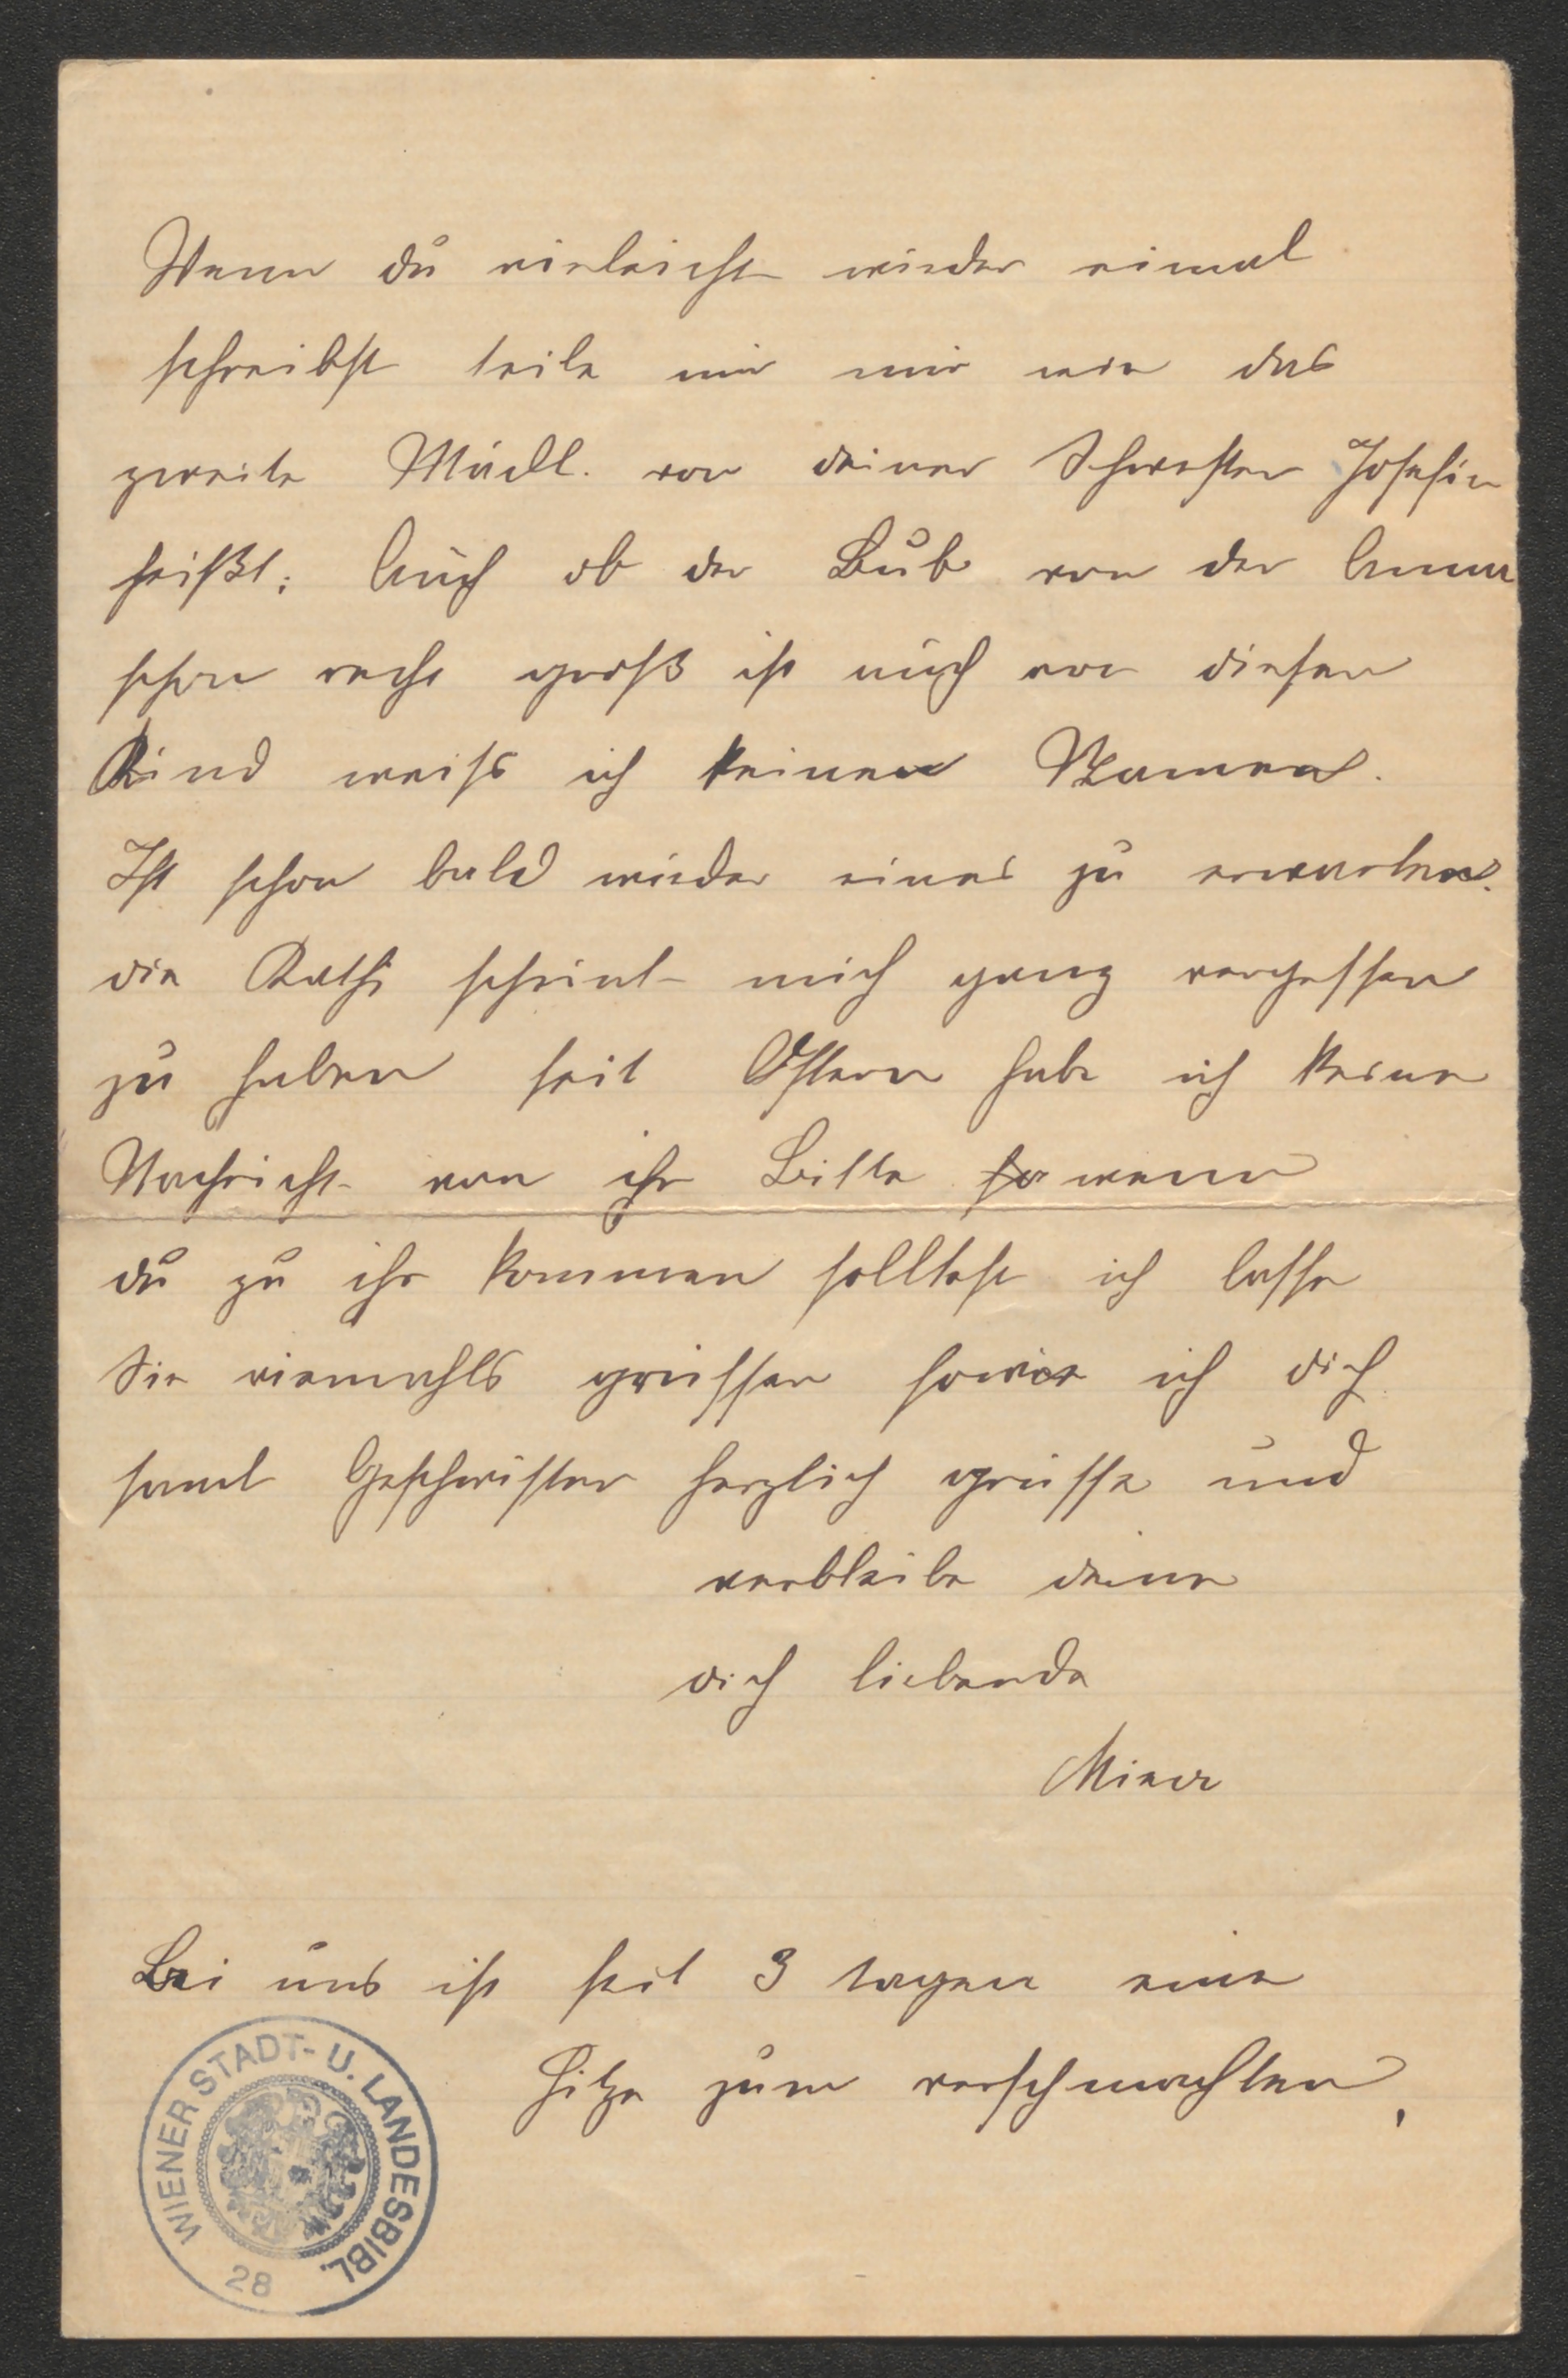 Wenn du vieleicht wieder eimal
schreibst teile mir mir wie das
zweite Mädl. von deiner Schwester Josefin
heißt; Auch ob der Bub von der Anna
schon recht groß ist auch von diesen
Kind weiss ich keinen Namen.
Ist schon bald wieder eines zu erwarten.
die Kathi scheint mich ganz vergessen
zu haben seit Ostern habe ich keine
Nachricht von ihr Bitte wenn
du zu ihr kommen solltest ich lasse
Sie viemahls grüssen sowie ich dich
samt Geschwister herzlich grüsse und
verbleibe deine
dich liebende
Bei uns ist seit 3 tagen eine
Hitze zum verschmachten,
WIENER STADT- U. LANDESBIBL.
28